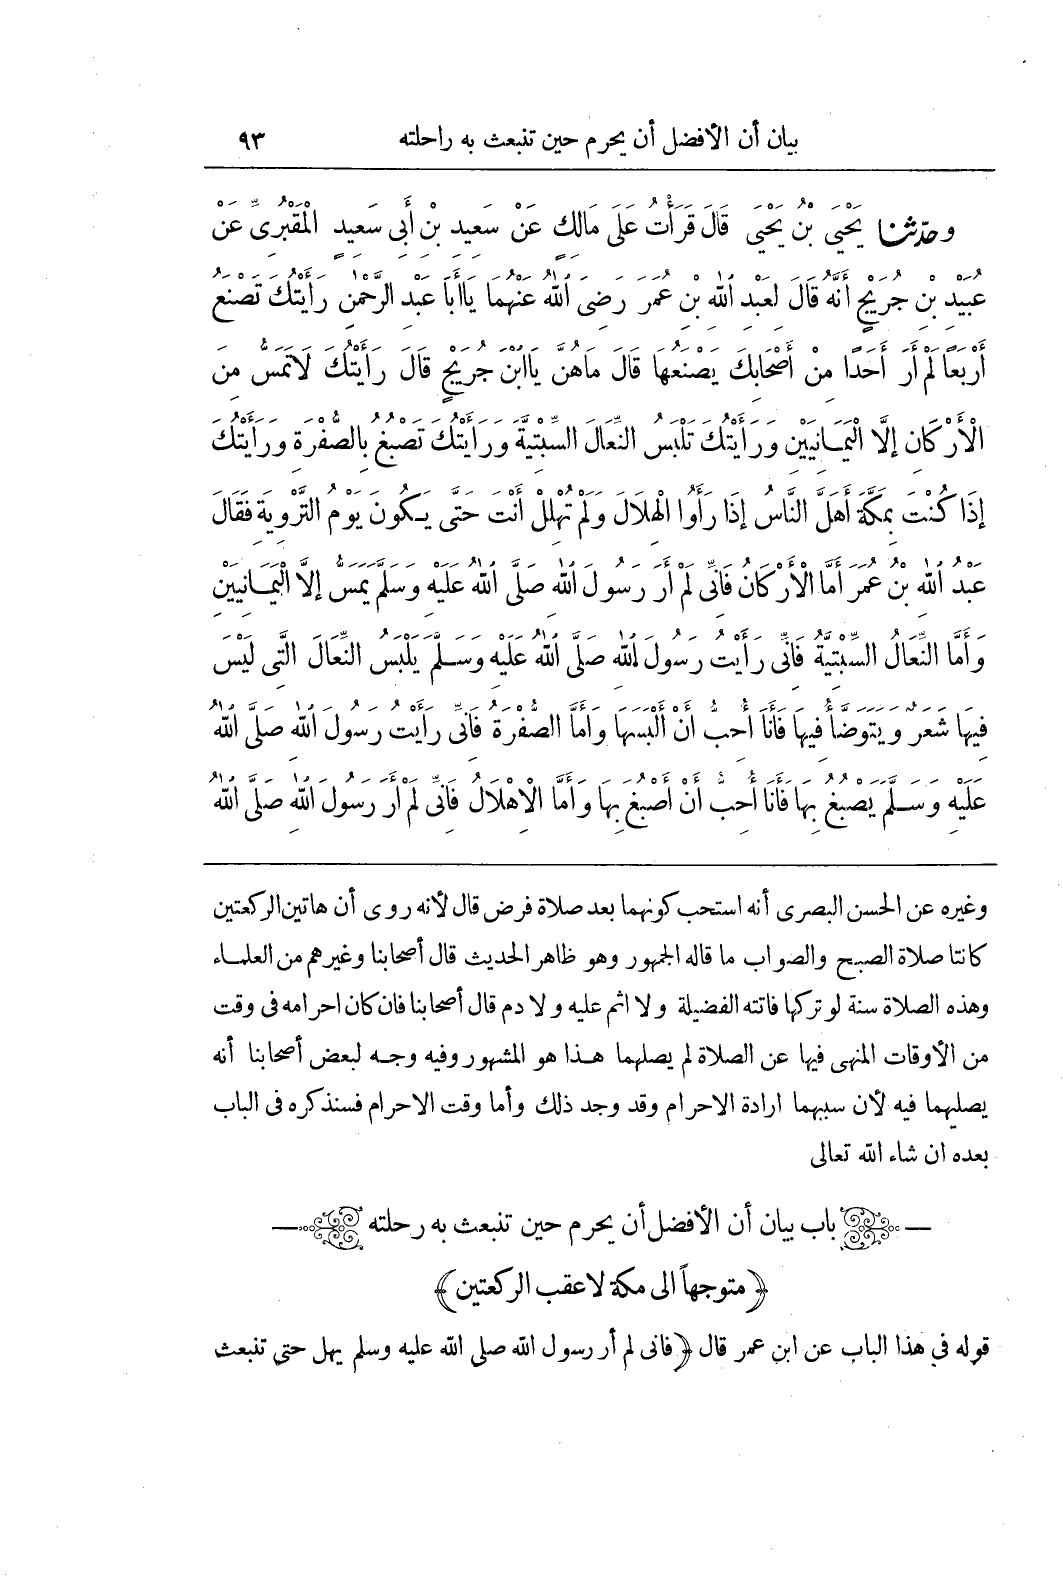 بيان أن الأفضل أن يحرم حين تنبعث به راحلته ٩٣
وحدّثنا يَحْيَى بْنُ يَحْيَى قَالَ قَرَأْتُ عَلَى مَالِكٍ عَنْ سَعِيدِ بْنِ أَبِى سَعِيدٍ الْمَقْبُرِىِّ عَنْ
عُبَيْدِ بْنِ جُرَيْجٍ أَنَّهُ قَالَ لِعَبْدِ اللهِ بْنِ عُمَرَ رَضِىَ اللهُ عَنْهُمَا يَاأَبَا عَبْدِ الرَّحْمٰنِ رَأَيْتُكَ تَصْنَعُ
أَرْبَعًا لَمْ أَرَ أَحَدًا مِنْ أَصْحَابِكَ يَصْنَعُهَا قَالَ مَاهُنَّ يَاابْنَ جُرَيْجٍ قَالَ رَأَيْتُكَ لَا تَمَسُّ مِنَ
الْأَرْكَانِ إِلَّا الْيَمَانِيَيْنِ وَرَأَيْتُكَ تَلْبَسُ النِّعَالَ السِّبْتِيَّةَ وَرَأَيْتُكَ تَصْبُغُ بِالصُّفْرَةِ وَرَأَيْتُكَ
إِذَا كُنْتَ بِمَكَّةَ أَهَلَّ النَّاسُ إِذَا رَأَوُا الْهِلَالَ وَلَمْ تُهْلِلْ أَنْتَ حَتَّى يَكُونَ يَوْمُ التَّرْوِيَةِ فَقَالَ
عَبْدُ اللهِ بْنُ عُمَرَ أَمَّا الْأَرْكَانُ فَانِّى لَمْ أَرَ رَسُولَ اللهِ صَلَّى اللهُ عَلَيْهِ وَسَلَّمَ يَمَسُّ إِلَّا الْيَمَانِيَيْنِ
وَأَمَّا النِّعَالُ السِّبْتِيَّةُ فَانِّى رَأَيْتُ رَسُولَ اللهِ صَلَّى اللهُ عَلَيْهِ وَسَلَّمَ يَلْبَسُ النِّعَالَ الَّتِى لَيْسَ
فِيهَا شَعَرٌ وَيَتَوَضَّأُ فِيهَا فَأَنَا أُحِبُّ أَنْ أَلْبَسَهَا وَأَمَّا الصُّفْرَةُ فَانِّى رَأَيْتُ رَسُولَ اللهِ صَلَّى اللهُ
عَلَيْهِ وَسَلَّمَ يَصْبُغُ بِهَا فَأَنَا أُحِبُّ أَنْ أَصْبُغَ بِهَا وَأَمَّا الْاِهْلَالُ فَانِّى لَمْ أَرَ رَسُولَ اللهِ صَلَّى اللهُ
وغيره عن الحسن البصرى أنه استحب كونهما بعد صلاة فرض قال لأنه روى أن هاتين الركعتين
كانتا صلاة الصبح والصواب ما قاله الجمهور وهو ظاهر الحديث قال أصحابنا وغيرهم من العلماء
وهذه الصلاة سنة لو تركها فاتته الفضيلة ولا اثم عليه ولا دم قال أصحابنا فان كان احرامه فى وقت
من الأوقات المنهى فيها عن الصلاة لم يصلهما هذا هو المشهور وفيه وجه لبعض أصحابنا أنه
يصليهما فيه لأن سببهما ارادة الاحرام وقد وجد ذلك وأما وقت الاحرام فسنذكره فى الباب
بعده ان شاء الله تعالى
باب بيان أن الأفضل أن يحرم حين تنبعث به رحلته
﴿متوجهاً الى مكة لا عقب الركعتين﴾
قوله في هذا الباب عن ابن عمر قال ﴿فانى لم أر رسول الله صلى الله عليه وسلم يهل حتى تنبعث